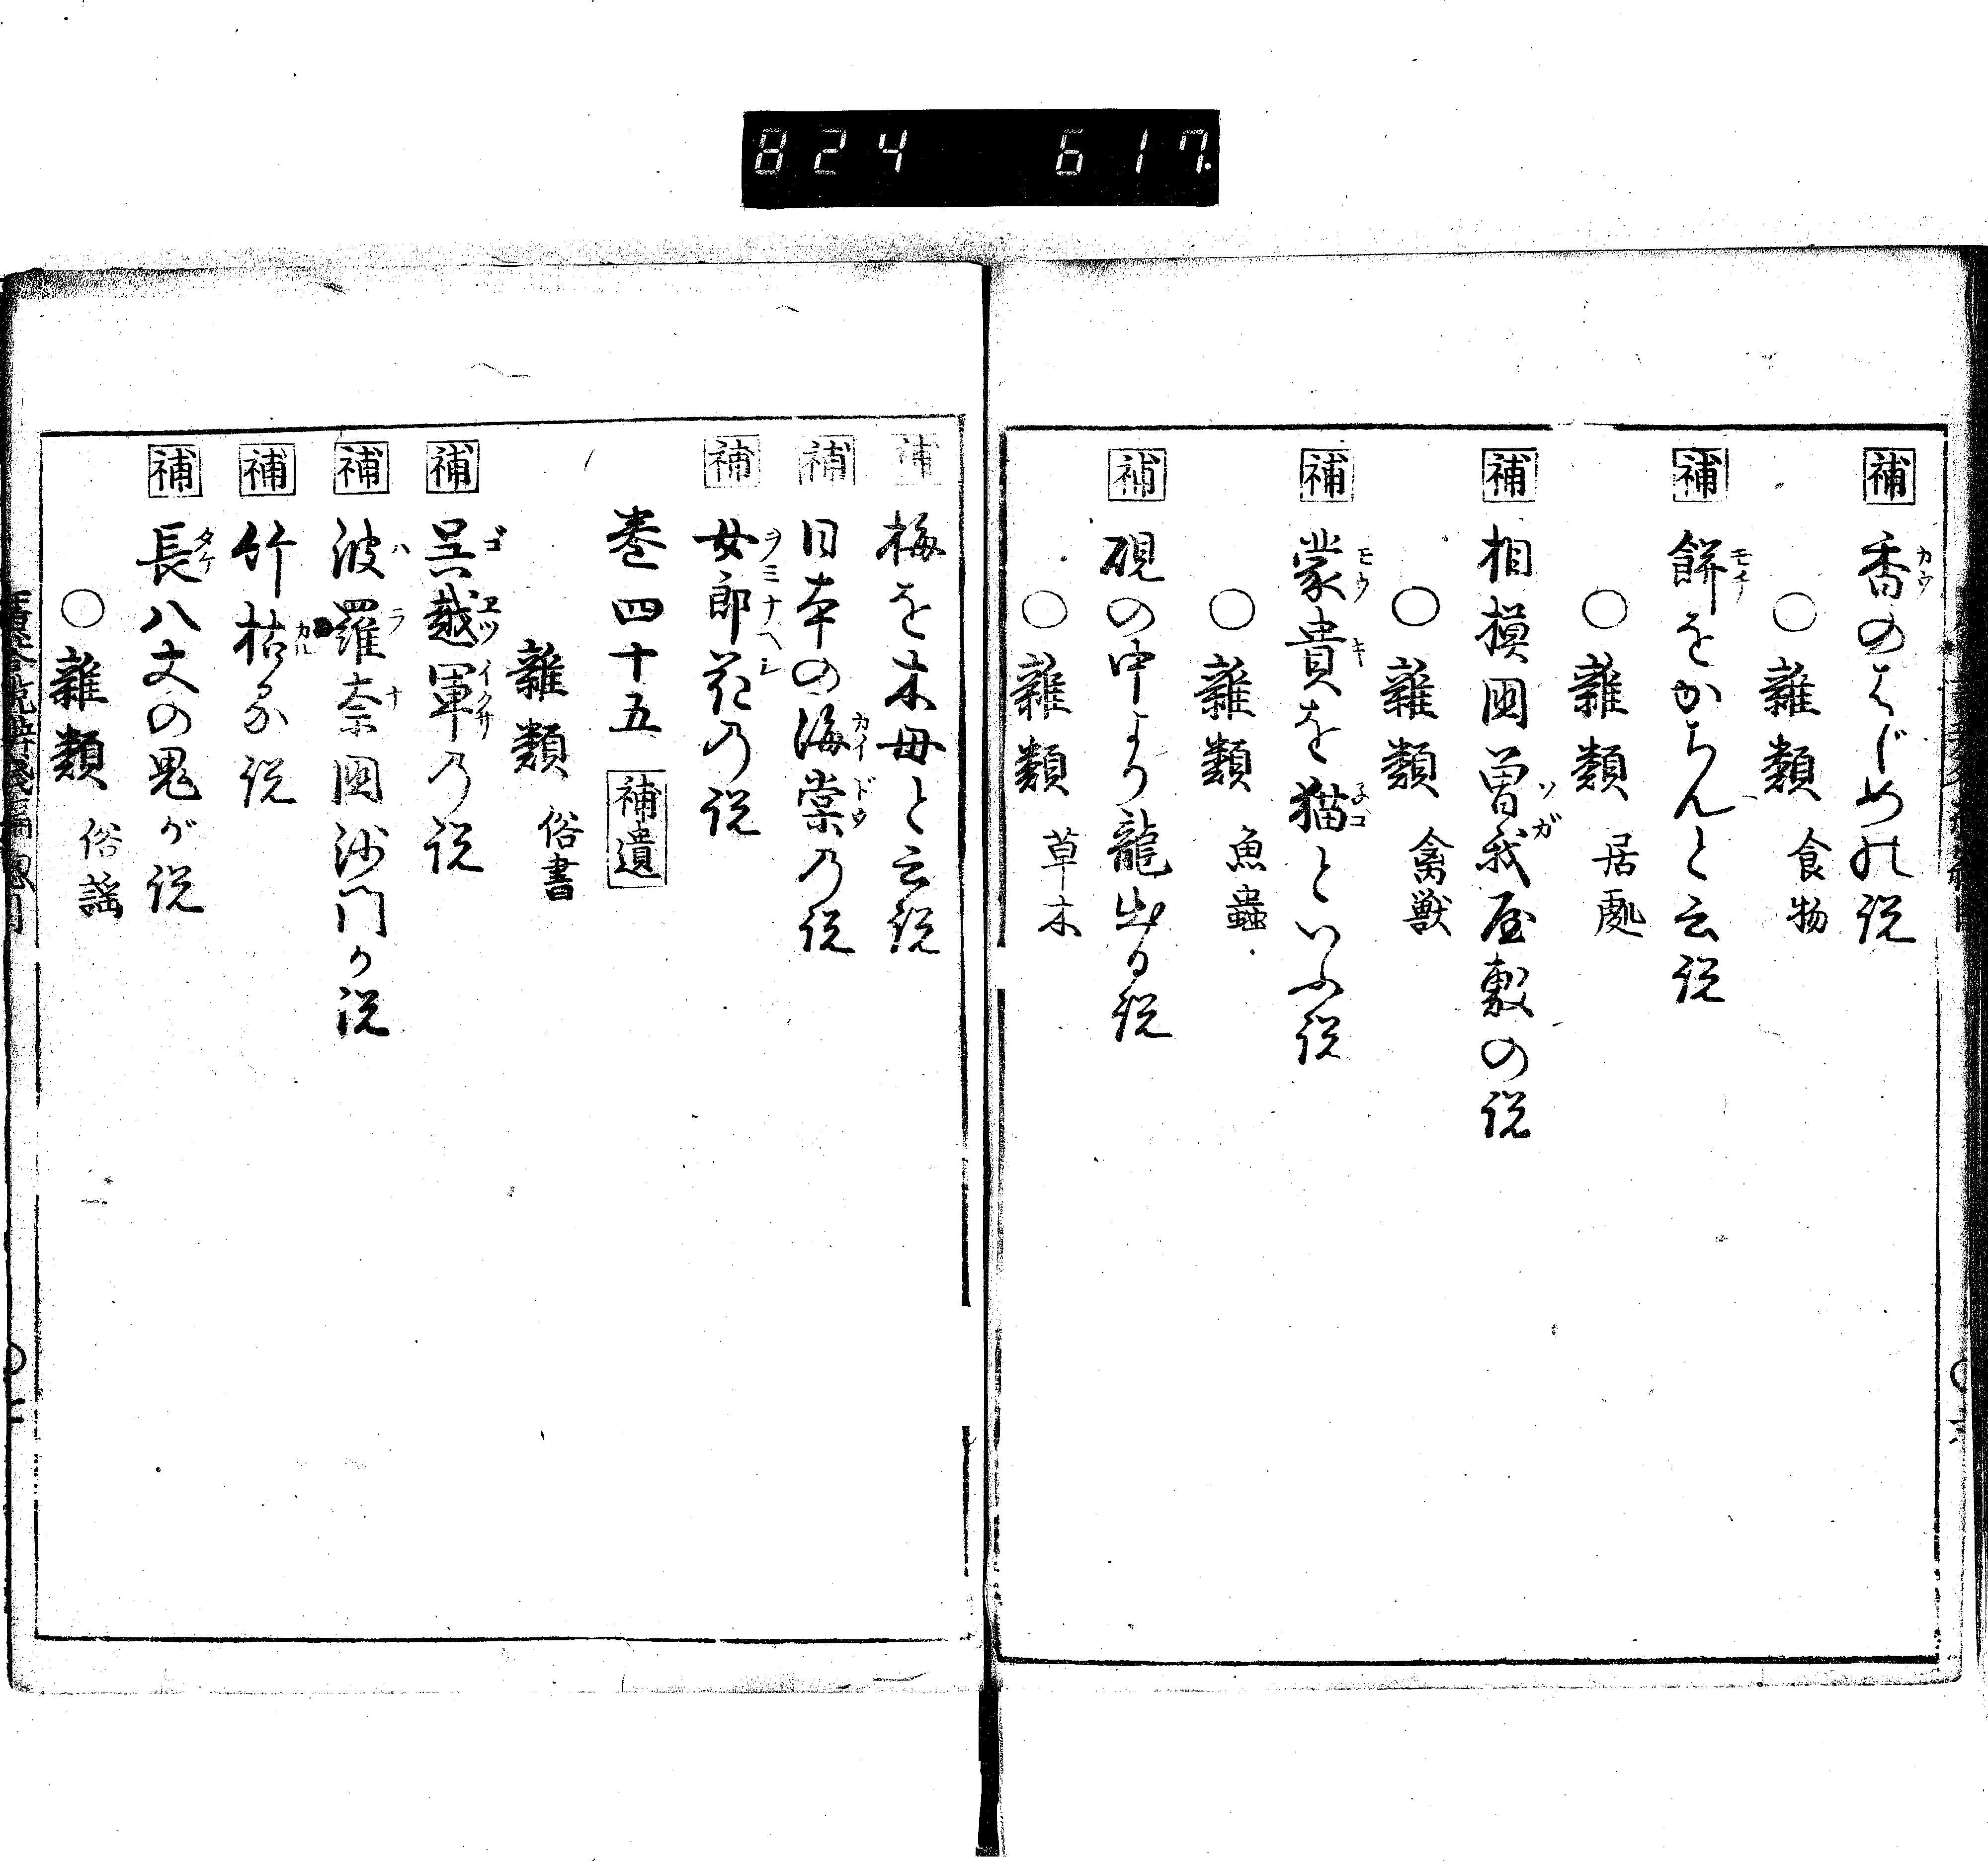 824 617
補 香のはじめの説
○雜類 食物
補 餅をかちんと云説
○雜類 居處
補 相摸國曽我屋敷の説
○雜類 禽獣
補 蒙貴を猫といふ説
○雜類 魚蟲
補 硯の中より龍出る説
○雜類 草木
補 梅を木母と云説
補 日本の海棠の説
補 女郎花の説
巻四十五 補遺
雜類 俗書
補 呉越軍の説
補 波羅奈國沙門が説
補 竹枯る説
補 長八丈の鬼が説
○雜類 俗謡